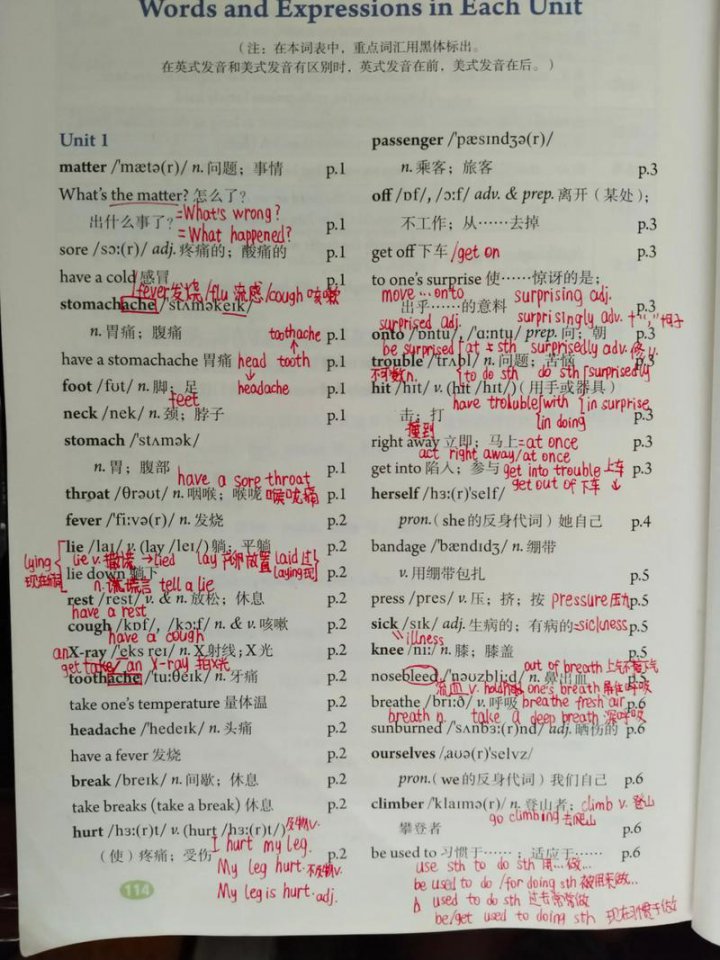 Words and Expressions in Each Unit
(注：在本词表中，重点词汇用黑体标出。
在英式发音和美式发音有区别时，英式发音在前，美式发音在后。)
Unit 1
matter /'mætə(r)/ n. 问题；事情 p.1
What's the matter? 怎么了？
出什么事了？ p.1
=What's wrong?
=What happened?
sore /sɔː(r)/ adj. 疼痛的；酸痛的 p.1
have a cold 感冒 p.1
fever发烧/flu 流感/cough 咳嗽
stomachache /'stʌməkeɪk/
n. 胃痛；腹痛 p.1
toothache
have a stomachache 胃痛 p.1
head tooth
foot /fʊt/ n. 脚；足 p.1
headache
feet
neck /nek/ n. 颈；脖子 p.1
stomach /'stʌmək/
n. 胃；腹部 p.1
have a sore throat
throat /θrəʊt/ n. 咽喉；喉咙 p.1
喉咙痛
fever /'fiːvə(r)/ n. 发烧 p.2
lie /laɪ/ v. (lay /leɪ/) 躺；平躺 p.2
lying
lie v. 撒谎→lied lay 产卵 放置 laid 过
laying现
lie down 躺下 p.2
n. 谎言 tell a lie
rest /rest/ v. & n. 放松；休息 p.2
have a rest
cough /kɒf/, /kɔːf/ n. & v. 咳嗽 p.2
have a cough
an
X-ray /'eks reɪ/ n. X射线；X光 p.2
get take an X-ray 拍X光
toothache /'tuːθeɪk/ n. 牙痛 p.2
take one's temperature 量体温 p.2
headache /'hedeɪk/ n. 头痛 p.2
have a fever 发烧 p.2
break /breɪk/ n. 间歇；休息 p.2
take breaks (take a break) 休息 p.2
hurt /hɜː(r)t/ v. (hurt /hɜː(r)t/)
及物v.
(使)疼痛；受伤 p.2
I hurt my leg.
My leg hurt. 不及物v.
My leg is hurt. adj.
114
passenger /'pæsɪndʒə(r)/
n. 乘客；旅客 p.3
off /ɒf/, /ɔːf/ adv. & prep. 离开（某处）；
不工作；从……去掉 p.3
get off 下车 p.3
/get on
to one's surprise 使……惊讶的是；
出乎……的意料 p.3
move … onto surprising adj.
surprised adj. surprisingly adv. +","
onto /'ɒntʊ/, /'ɑːntu/ prep. 向；朝 p.3
be surprised at = sth surprisedly adv. 修v.
trouble /'trʌbl/ n. 问题；苦恼 p.3
不可数n. to do sth do sth surprisedly
hit /hɪt/ v. (hit /hɪt/)（用手或器具）
have trouble with in surprise
击；打 p.3
撞到 in doing
right away 立即；马上 p.3
=at once
act right away/at once
get into 陷入；参与 p.3
get into trouble 上车
get out of 下车
herself /hɜː(r)'self/
pron. (she的反身代词) 她自己 p.4
bandage /'bændɪdʒ/ n. 绷带
v. 用绷带包扎 p.5
press /pres/ v. 压；挤；按 p.5
pressure 压力
sick /sɪk/ adj. 生病的；有病的 p.5
=sickness
illness
knee /niː/ n. 膝；膝盖 p.5
out of breath 上气不接下气
nosebleed /'nəʊzbliːd/ n. 鼻出血 p.5
流血 v. hold one's breath 屏住呼吸
breathe /briːð/ v. 呼吸 p.6
breathe fresh air
breath n. take a deep breath 深呼吸
sunburned /'sʌnbɜː(r)nd/ adj. 晒伤的 p.6
ourselves /ˌaʊə(r)'selvz/
pron. (we的反身代词) 我们自己 p.6
climber /'klaɪmə(r)/ n. 登山者；
climb v. 登山
go climbing 去爬山
攀登者 p.6
be used to 习惯于……；适应于…… p.6
use sth to do sth 用…做…
be used to do /for doing sth 被用来做…
used to do sth 过去常常做
be/get used to doing sth 现在习惯于做